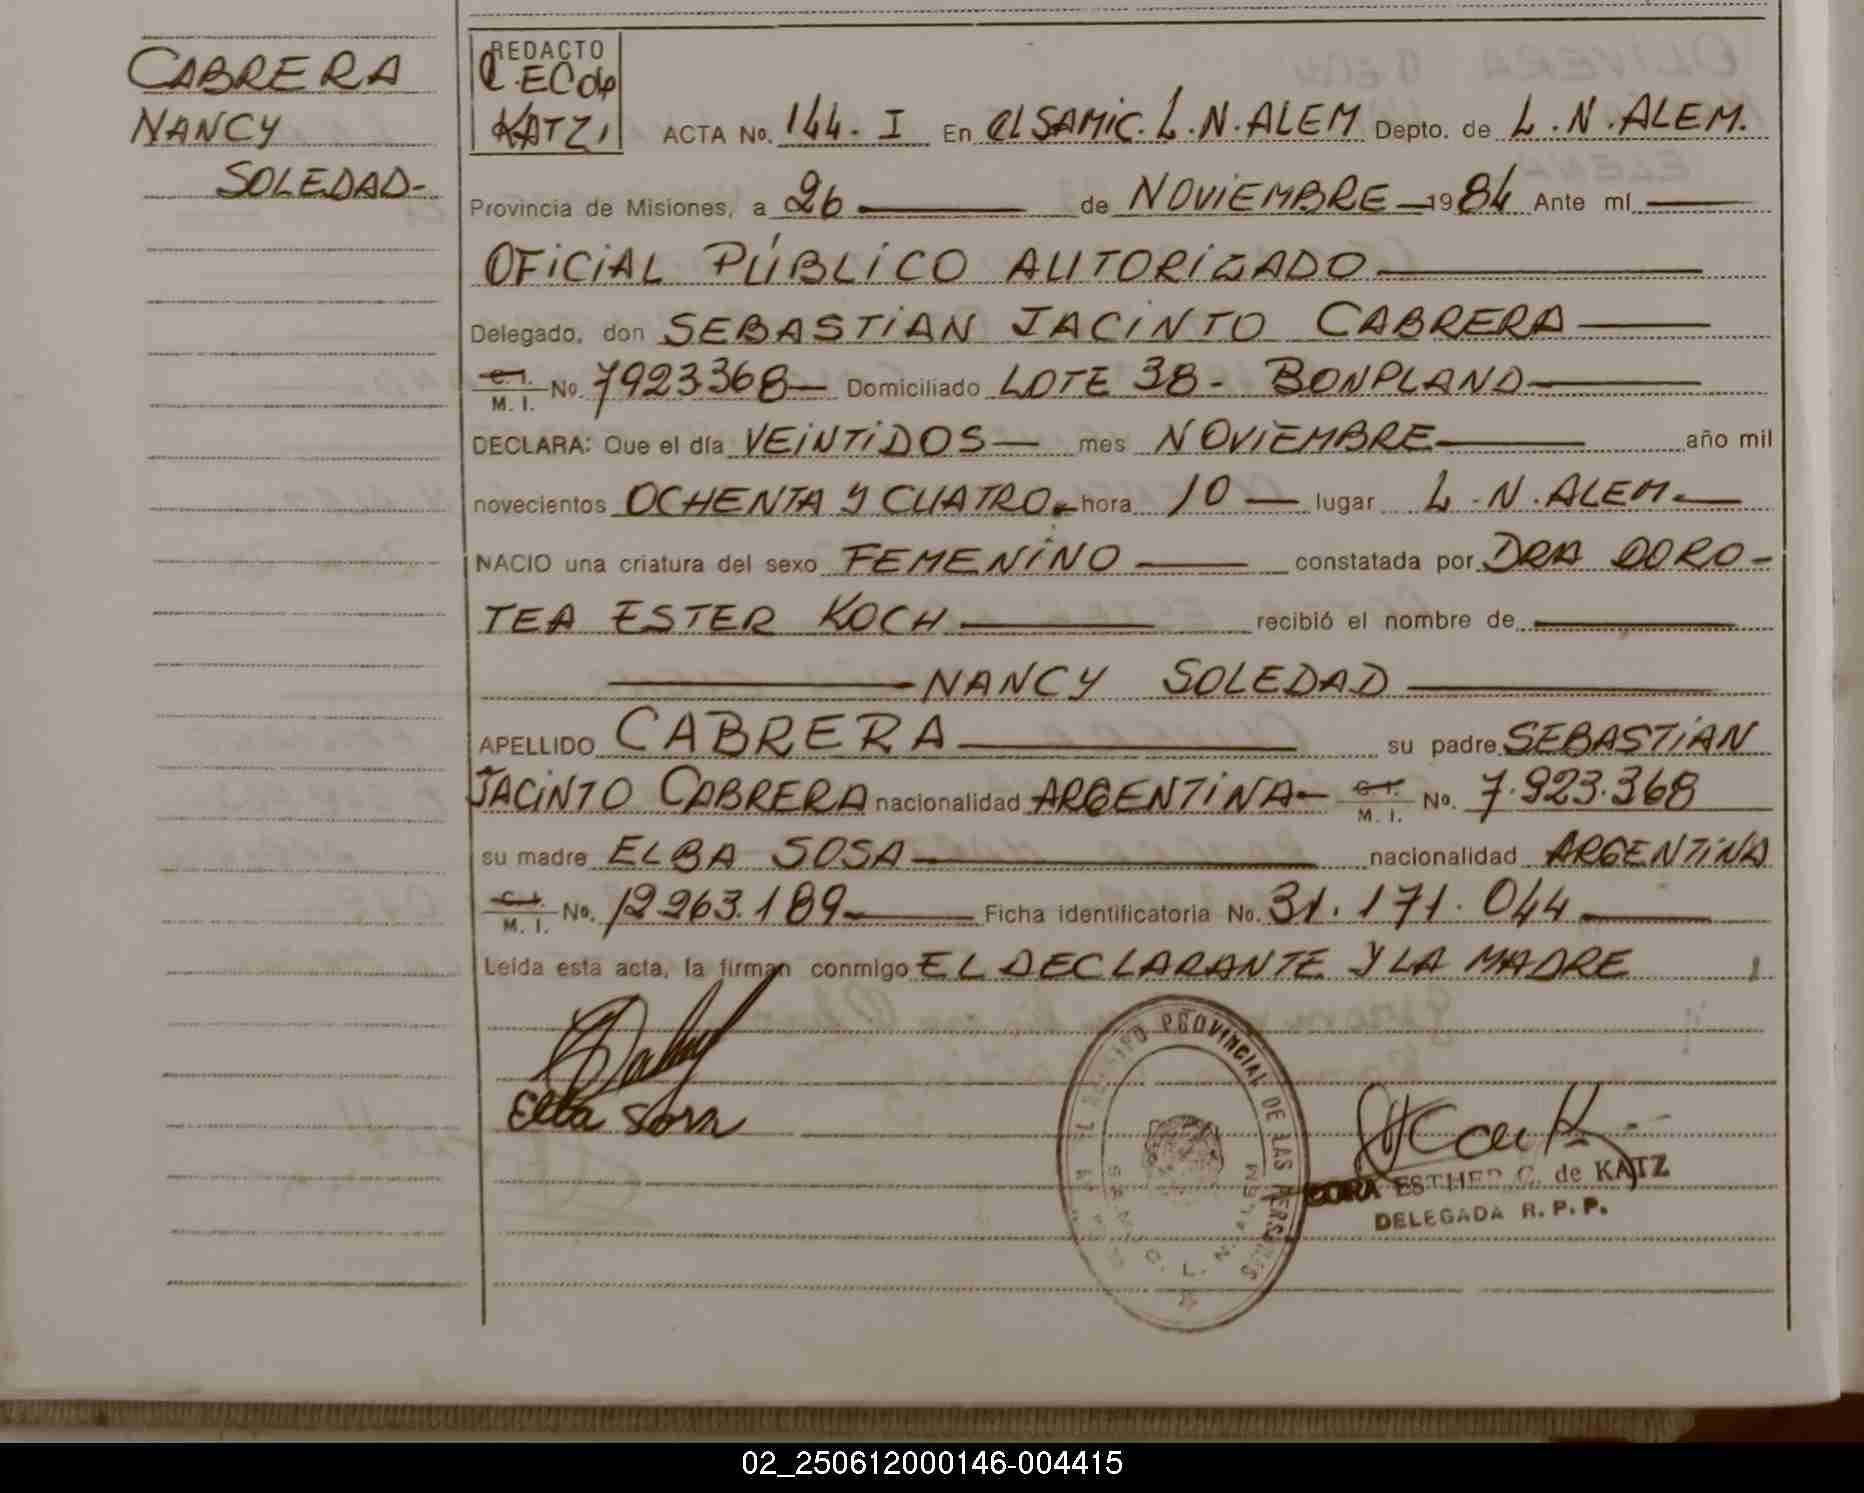 CABRERA
NANCY
SOLEDAD-
REDACTO
C. EC de
KATZ
ACTA No. 144. I En el SAMIC. L. N. ALEM Depto. de L. N. ALEM.
Provincia de Misiones, a 26 de NOVIEMBRE 1984 Ante mí
OFICIAL PÚBLICO AUTORIZADO
Delegado, don SEBASTIAN JACINTO CABRERA
C. I. M. I. No. 7923368 Domiciliado LOTE 38 - BONPLAND
DECLARA: Que el día VEINTIDOS mes NOVIEMBRE año mil
novecientos OCHENTA Y CUATRO. hora 10 lugar L. N. ALEM.
NACIO una criatura del sexo FEMENINO constatada por DRA DORO-
TEA ESTER KOCH recibió el nombre de
NANCY SOLEDAD
APELLIDO CABRERA su padre SEBASTIAN
JACINTO CABRERA nacionalidad ARGENTINA C. I. M. I. No. 7.923.368
su madre ELBA SOSA nacionalidad ARGENTINA
C. I. M. I. No. 12.263.189 Ficha identificatoria No. 31.171.044
Leída esta acta, la firman conmigo EL DECLARANTE Y LA MADRE
Elba Sosa
PROVINCIAL DE LAS PERSONAS
L. N. ALEM
ESTHER C. de KATZ
DELEGADA R. P. P.
02_250612000146-004415